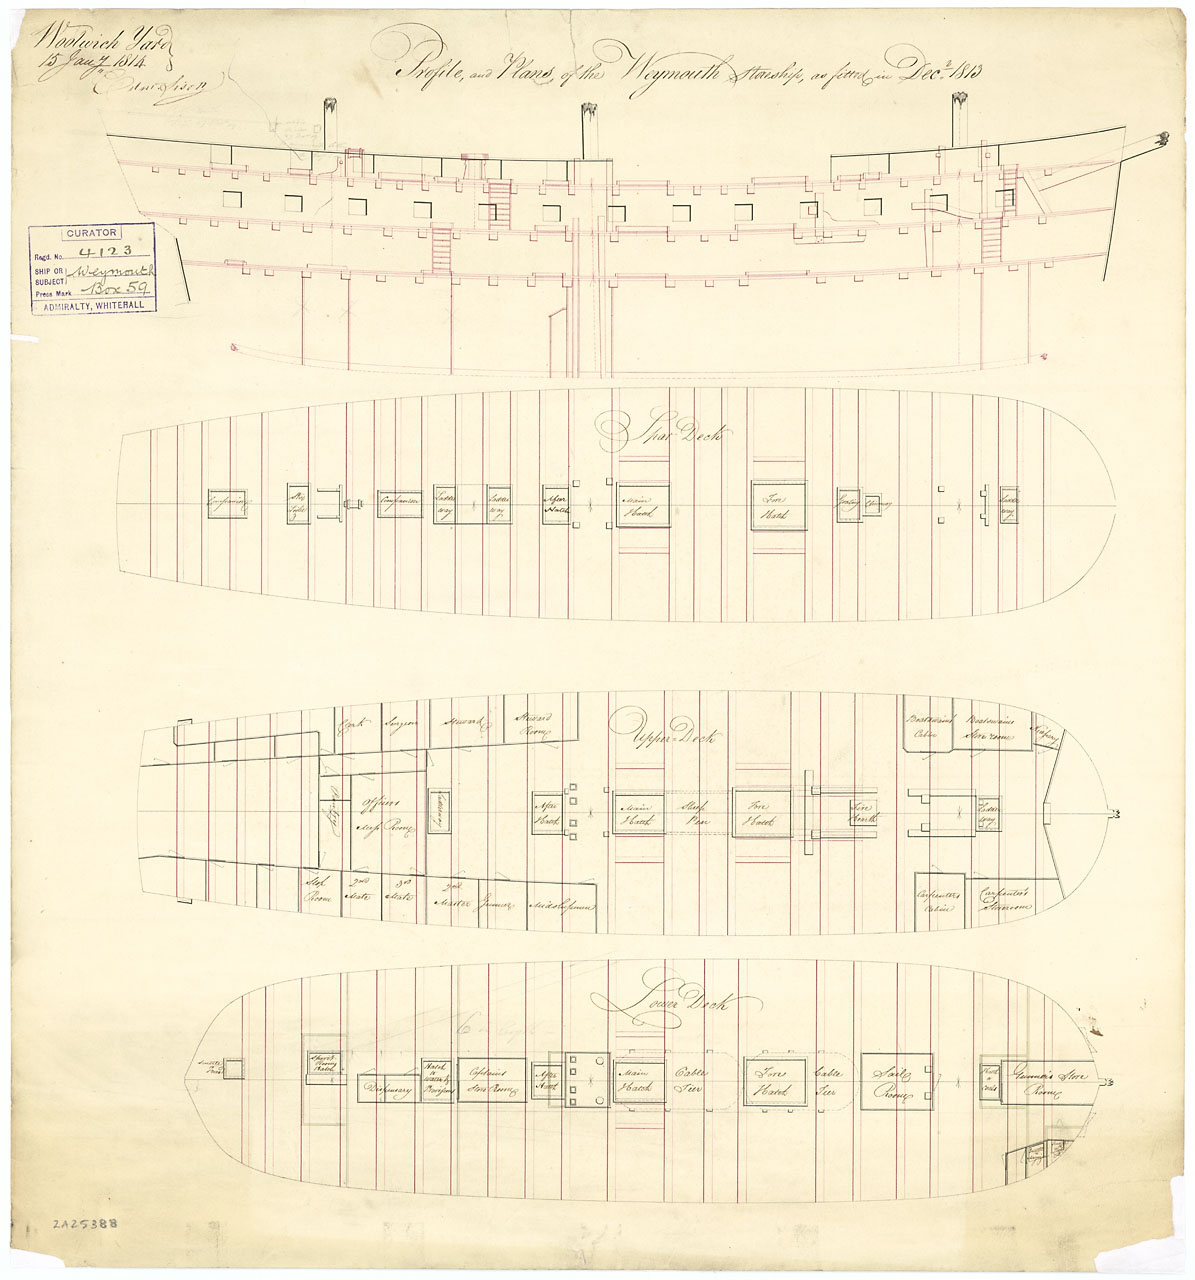 Woolwich Yard
15 Jany 1814
Profile, and Plans, of the Weymouth Storeship, as fitted in Decr. 1813
CURATOR
Regd. No. 4123
SHIP OR SUBJECT Weymouth
Press Mark Box 59
ADMIRALTY, WHITEHALL
Spar Deck
Companion
Sky Light
Companion
Ladder way
Ladder way
After Hatch
Main Hatch
Fore Hatch
Grating
Chimney
Ladder way
Upper Deck
Clerk
Surgeon
Steward
Steward Room
Boatswains Cabin
Boatswains Store room
Pantry
Officers Mess Room
Ladderway
After Hatch
Main Hatch
Sheep Pen
Fore Hatch
Fire Hearth
Ladder way
Slop Room
2nd Mate
3rd Mate
2nd Master
Gunner
Midshipmen
Carpenters Cabin
Carpenter's Storeroom
Lower Deck
Spirit Room Hatch
Dispensary
Captains Store Room
After Hatch
Main Hatch
Cable Tier
Fore Hatch
Cable Tier
Sail Room
Gunners Store Room
2A25388